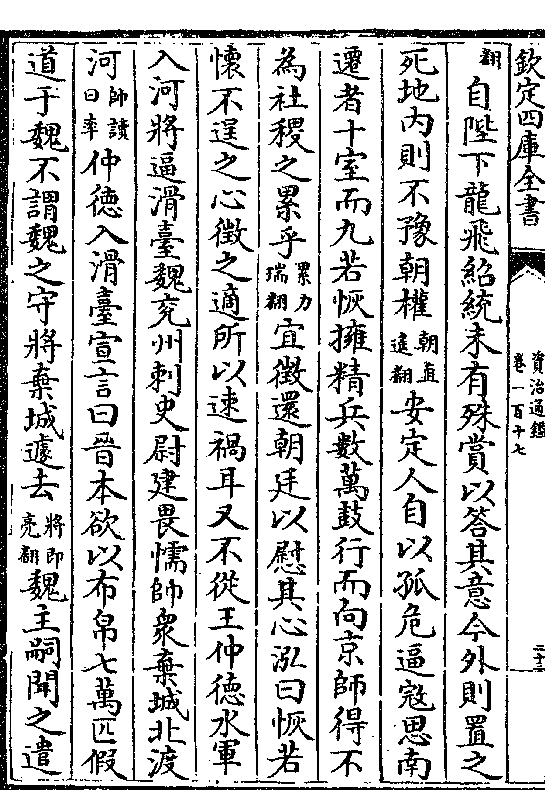 欽定四庫全書
資治通鑑
卷一百十七
翻自陛下龍飛紹統未有殊賞以答其意今外則置之
死地内則不豫朝權朝直遥翻安定人自以孤危逼寇思南
遷者十室而九若恢擁精兵數萬鼓行而向京師得不
為社稷之累乎累力瑞翻宜徵還朝廷以慰其心泓曰恢若
懷不逞之心徵之適所以速禍耳又不從王仲德水軍
入河將逼滑臺魏兖州刺史尉建畏懦帥衆棄城北渡
河帥讀曰率仲德入滑臺宣言曰晉本欲以布帛七萬匹假
道于魏不謂魏之守將棄城遽去將即亮翻魏主嗣聞之遣